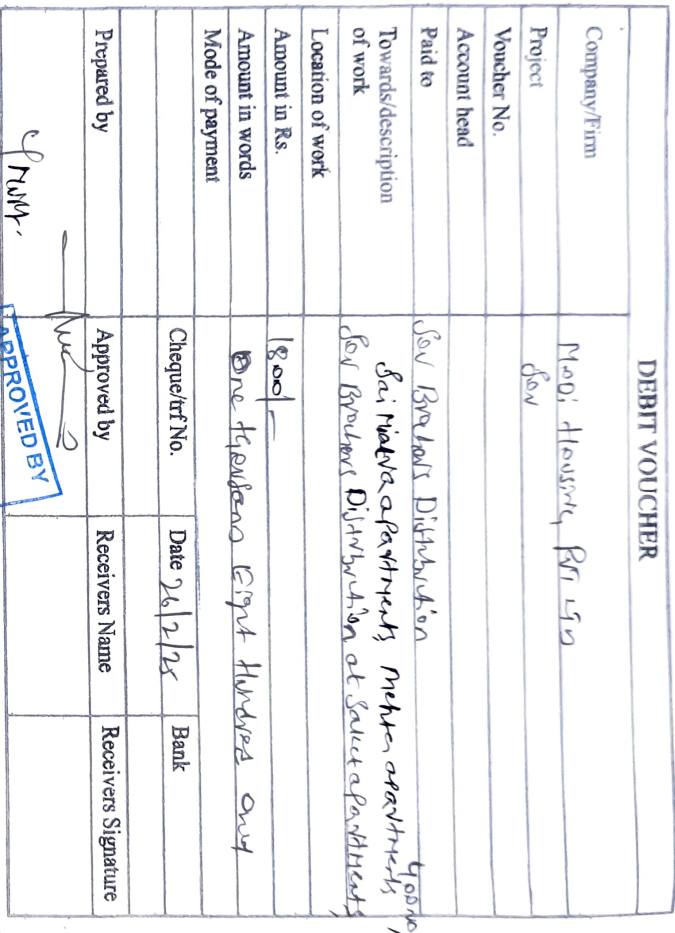 DEBIT VOUCHER
Company/Firm Modi Housing Pvt Ltd
Project Sov
Voucher No.
Account head
Paid to Sov Brochors Distribution
Towards/description of work Sai Mitra apartments, Mehta apartments 400 no,
Sov Brochors Distribution at Saket apartments,
Location of work
Amount in Rs. 1800/-
Amount in words One thousand Eight Hundred only
Mode of payment Cheque/trf No. Date 26/2/25 Bank
Prepared by Approved by Receivers Name Receivers Signature
APPROVED BY